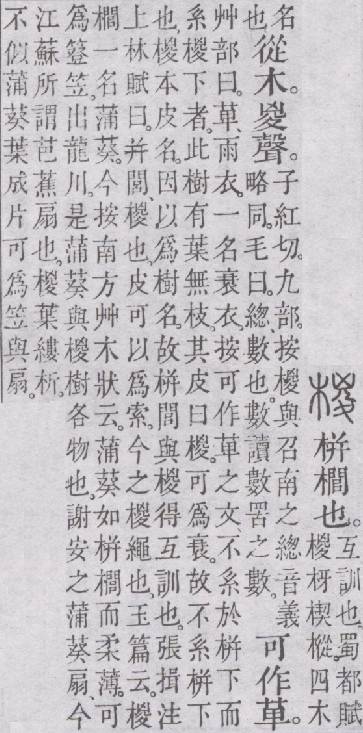 椶 栟櫚也。互訓也。蜀都賦
椶枒楔樅。四木
名也。從木。㚇聲。子紅切。九部。按椶與召南之緫音義
略同。毛曰。緫、數也。數讀數罟之數。可作萆。
艸部曰。萆、雨衣。一名衰衣。按可作萆之文、不系於栟下而
系椶下者。此樹有葉無枝。其皮曰椶。可爲衰。故不系栟下
也。椶本皮名。因以爲樹名。故栟閭與椶得互訓也。張揖注
上林賦曰。并閭、椶也。皮可以爲索。今之椶繩也。玉篇云。椶
櫚一名蒲葵。今按南方艸木狀云。蒲葵如栟櫚而柔薄。可
爲簦笠。出龍川。是蒲葵與椶樹各物也。謝安之蒲葵扇、今
江蘇所謂芭蕉扇也。椶葉縷析。
不似蒲葵葉成片可爲笠與扇。